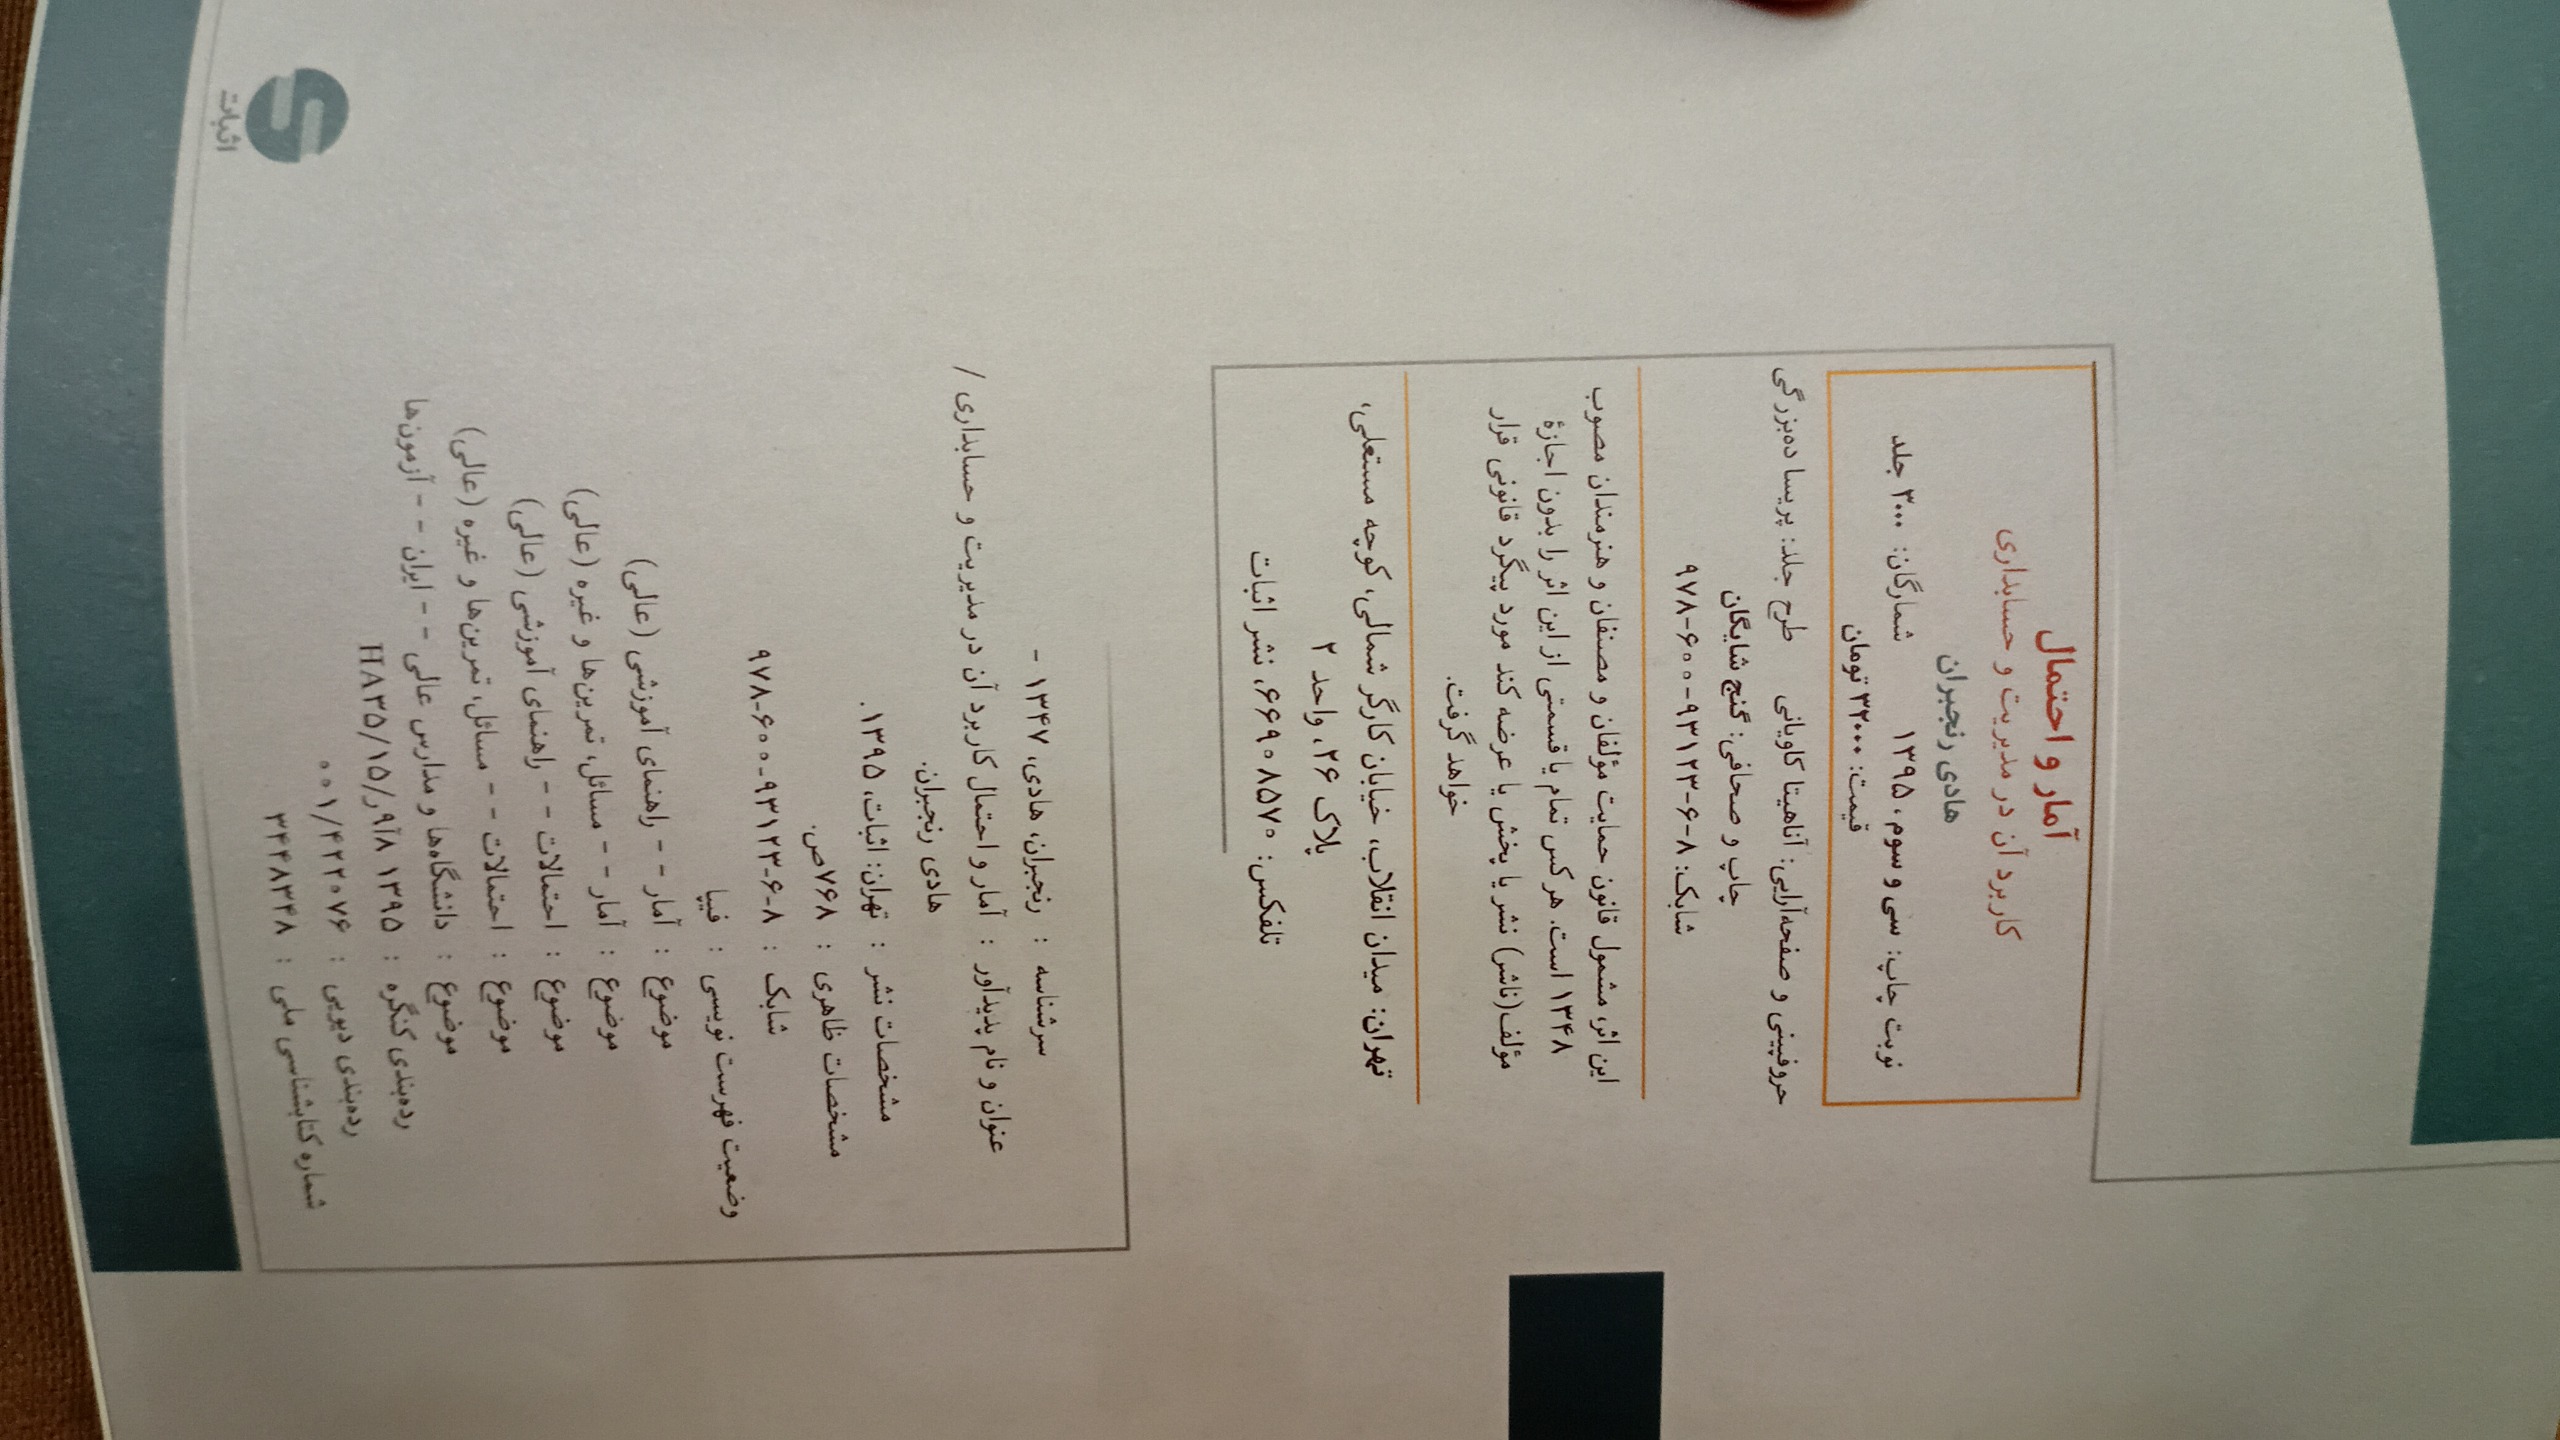 آمار و احتمال
کاربرد آن در مدیریت و حسابداری
هادی رنجبران
نوبت چاپ: سی و سوم، ۱۳۹۵ شمارگان: ۳۰۰۰ جلد
قیمت: ۳۲۰۰۰ تومان
حروفچینی و صفحه‌آرایی: آناهیتا کاویانی طرح جلد: پریسا ده‌بزرگی
چاپ و صحافی: گنج شایگان
شابک: ۸-۶-۹۳۱۲۳-۶۰۰-۹۷۸
این اثر، مشمول قانون حمایت مؤلفان و مصنفان و هنرمندان مصوب
۱۳۴۸ است. هر کس تمام یا قسمتی از این اثر را بدون اجازۀ
مؤلف(ناشر) نشر یا پخش یا عرضه کند مورد پیگرد قانونی قرار
خواهد گرفت.
تهران: میدان انقلاب، خیابان کارگر شمالی، کوچه مستعلی،
پلاک ۲۶، واحد ۲
تلفکس: ۶۶۹۰۸۵۷۰، نشر اثبات
سرشناسه : رنجبران، هادی، ۱۳۴۷ -
عنوان و نام پدیدآور : آمار و احتمال کاربرد آن در مدیریت و حسابداری /
هادی رنجبران.
مشخصات نشر : تهران: اثبات، ۱۳۹۵.
مشخصات ظاهری : ۷۶۸ص.
شابک : ۸-۶-۹۳۱۲۳-۶۰۰-۹۷۸
وضعیت فهرست نویسی : فیپا
موضوع : آمار - - راهنمای آموزشی (عالی)
موضوع : آمار - - مسائل، تمرین‌ها و غیره (عالی)
موضوع : احتمالات - - راهنمای آموزشی (عالی)
موضوع : احتمالات - - مسائل، تمرین‌ها و غیره (عالی)
موضوع : دانشگاه‌ها و مدارس عالی - - ایران - - آزمون‌ها
رده‌بندی کنگره : ۱۳۹۵ ۸آ۹ر/۱۵/HA۳۵
رده‌بندی دیویی : ۰۰۱/۴۲۲۰۷۶
شماره کتابشناسی ملی : ۳۴۴۸۳۴۸
اثبات